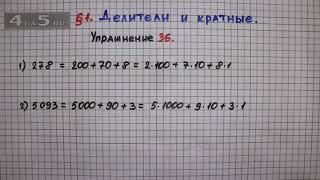 4на5.ru
§1. Делители и кратные.
Упражнение 36.
1) 278 = 200+70+8 = 2·100+7·10+8·1
2) 5093 = 5000+90+3 = 5·1000+9·10+3·1